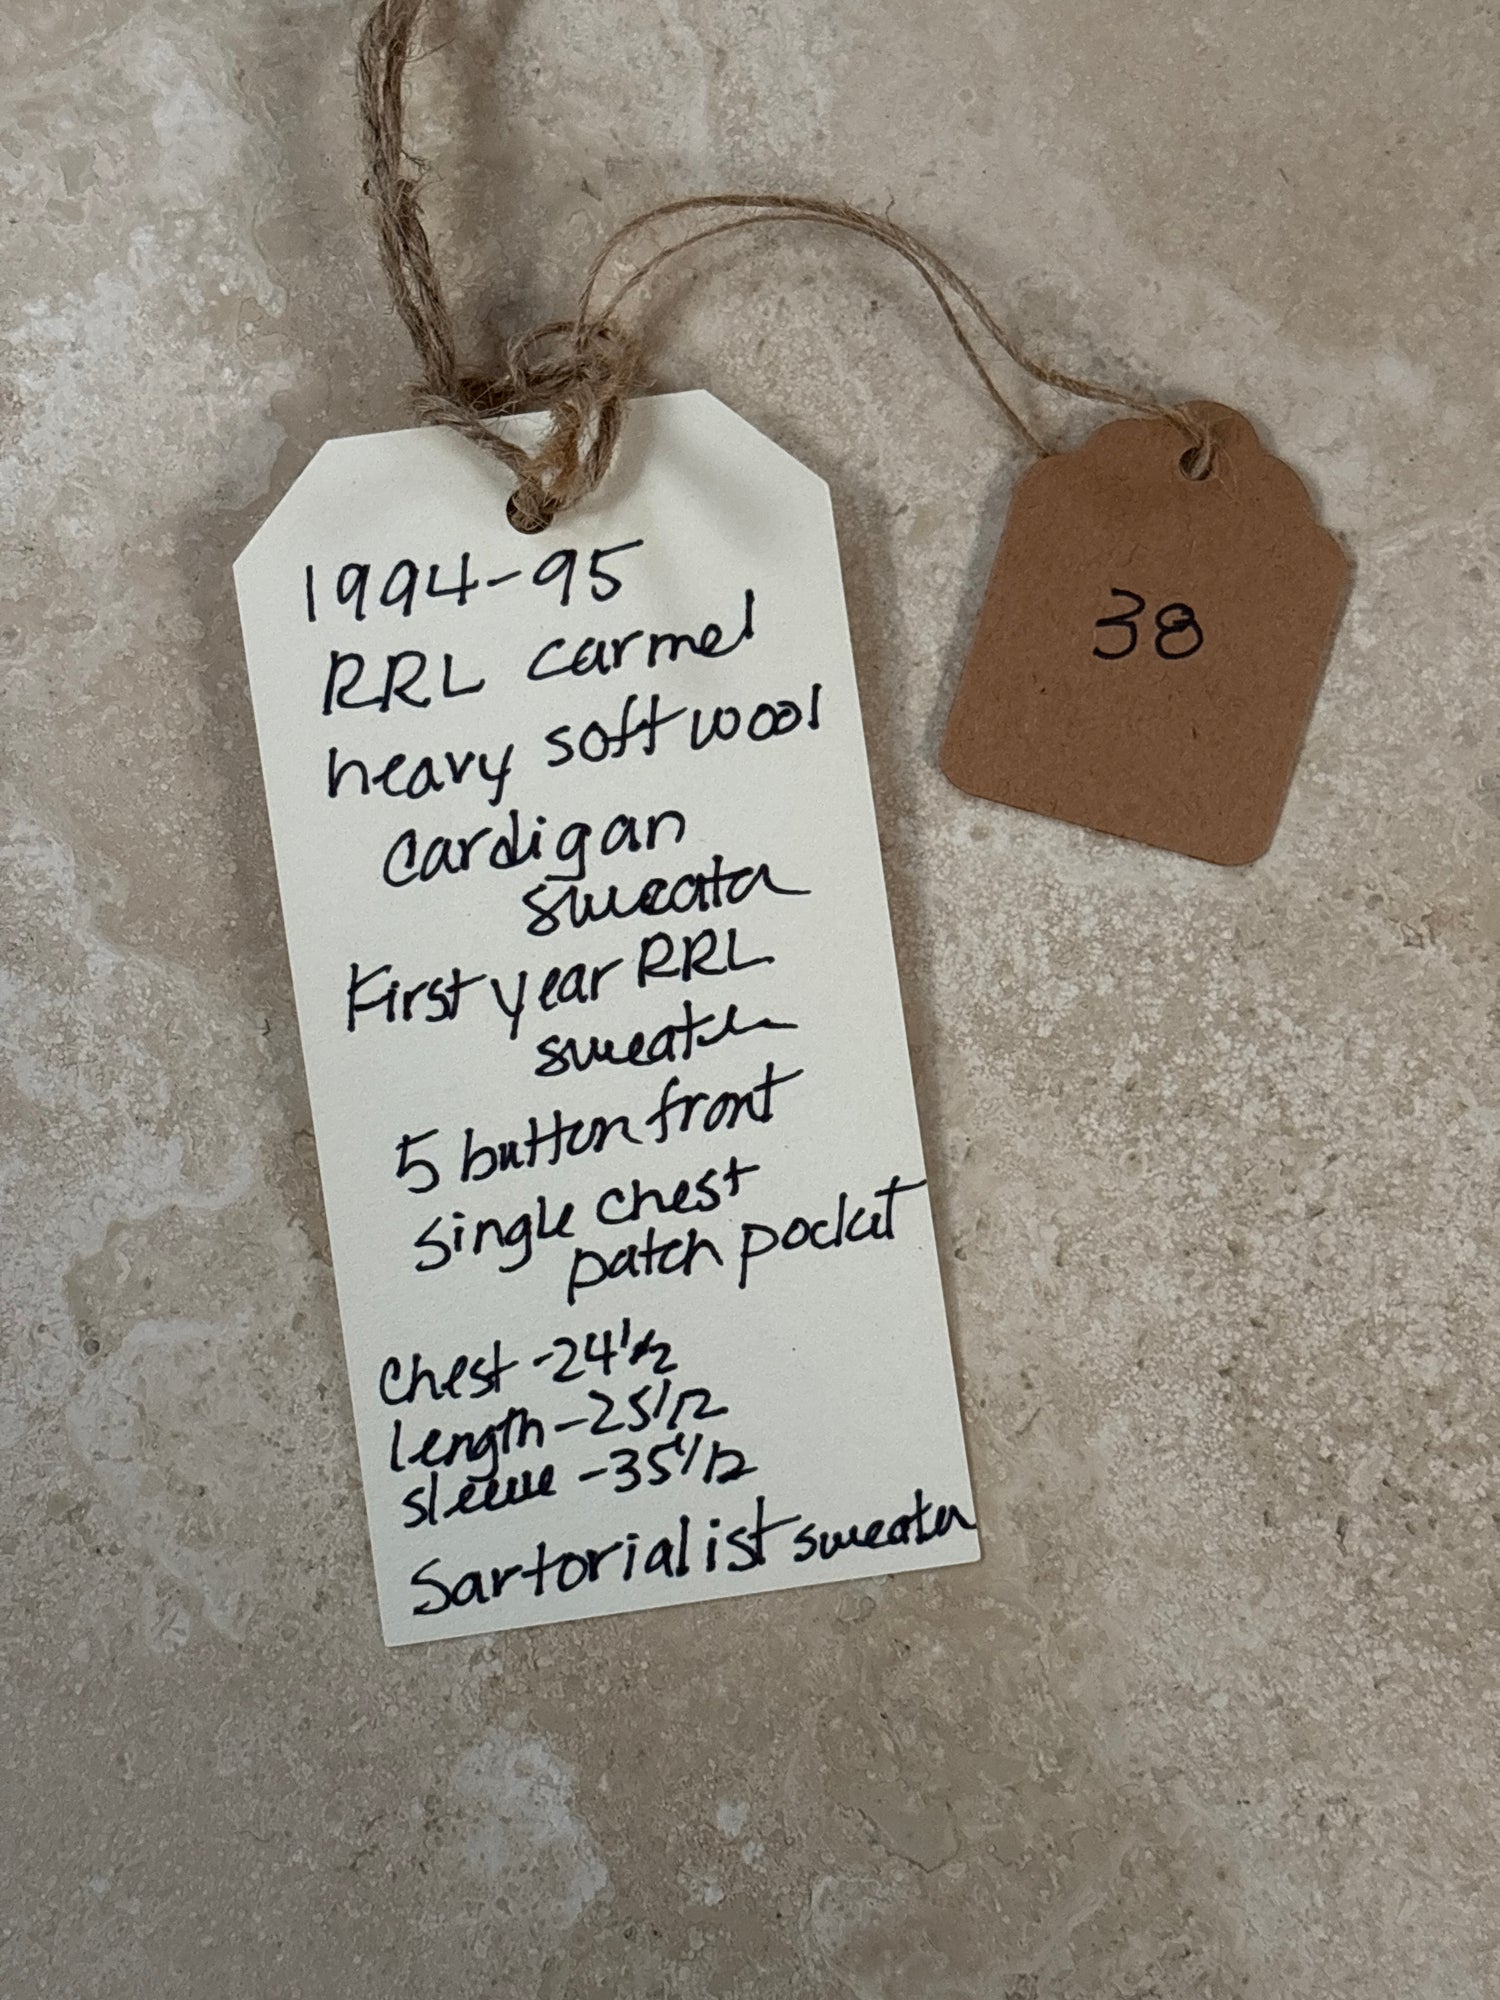 1994-95
RRL carmel
heavy soft wool
cardigan
sweater
First year RRL
sweater
5 button front
single chest
patch pocket
chest -24 1/2
length -25 1/2
sleeve -35 1/2
Sartorialist sweater
38